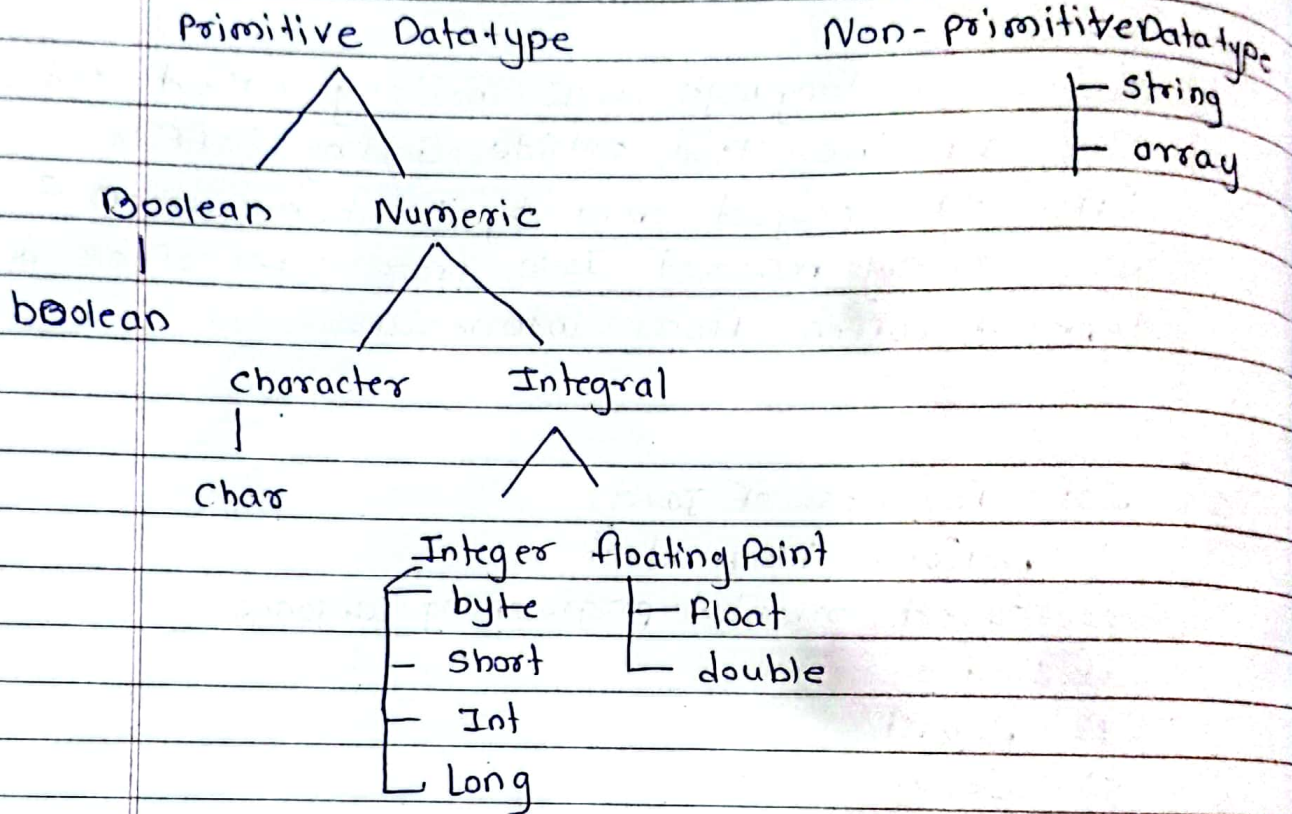 Primitive Datatype Non-primitive Datatype
String
array
Boolean Numeric
boolean
Character Integral
Char
Integer floating Point
byte float
Short double
Int
Long